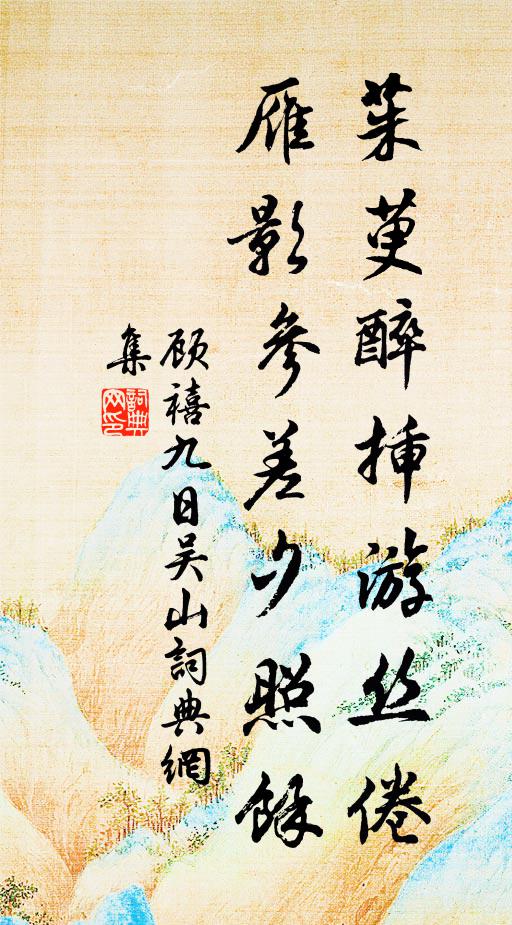 茱萸醉插游丝倦
雁影参差夕照馀
顾禧九日吴山詞典網
集
詞典
网印